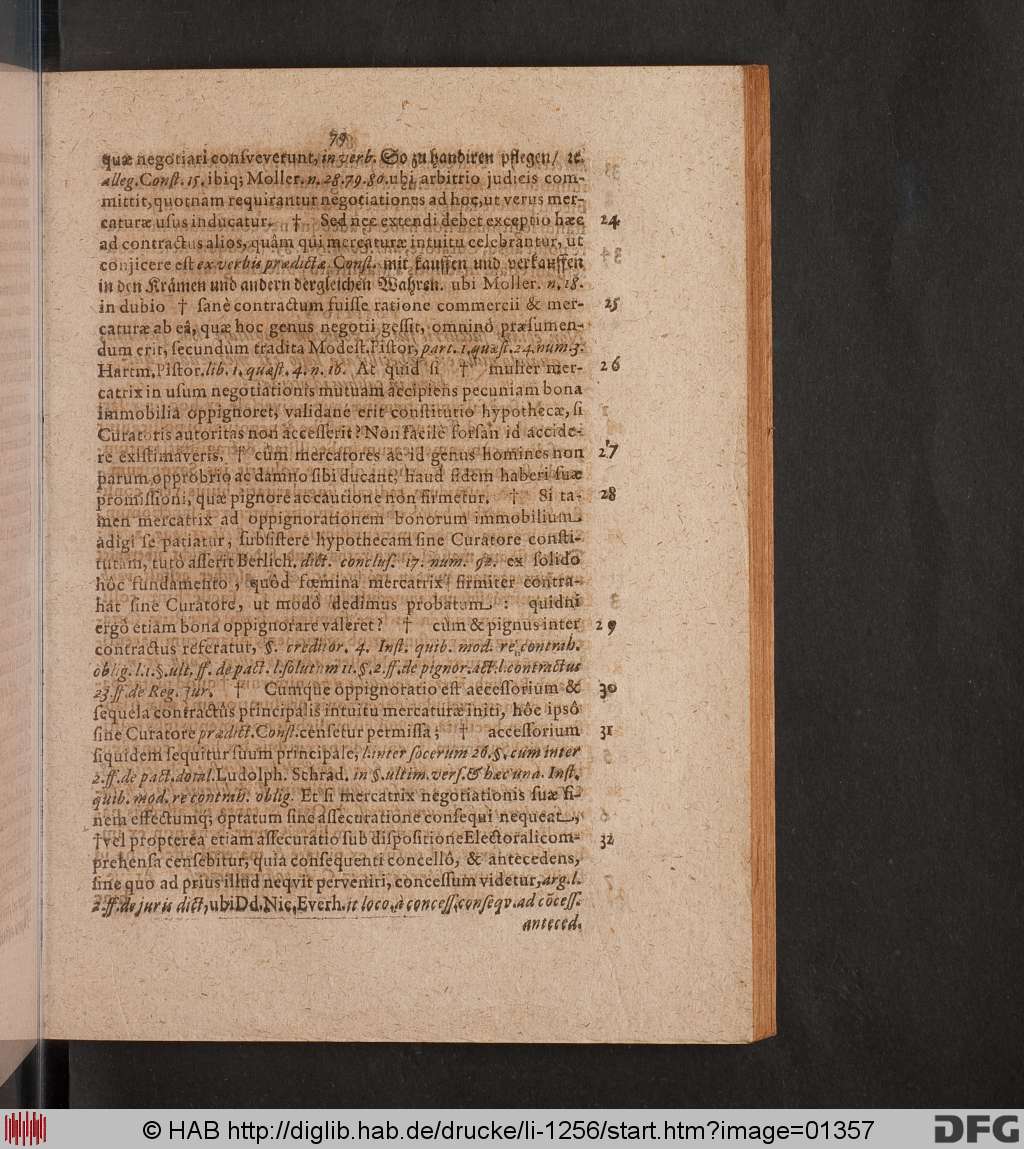 79
quæ negotiari consveverunt, in verb. So zu handiren pflegen/ ꝛc.
alleg. Const. 15. ibiq; Moller. n. 28. 79. 80. ubi arbitrio judicis com-
mittit, quotnam requirantur negotiationes ad hoc, ut verus mer-
caturæ usus inducatur. † Sed nec extendi debet exceptio hæc 24
ad contractus alios, quâm qui mercaturæ intuitu celebrantur, ut
conjicere est ex verbis prædictæ Const. mit kauffen und verkauffen
in den Krämen und andern dergleichen Wahren. ubi Moller. n. 18.
in dubio † sanè contractum fuisse ratione commercii & mer- 25
caturæ ab eâ, quæ hoc genus negotii gessit, omninò præsumen-
dum erit, secundum tradita Modest. Pistor, part. 1. quæst. 24. num. 3.
Hartm. Pistor. lib. 1. quæst. 4. n. 16. At quid si † mulier mer- 26
catrix in usum negotiationis mutuam accipiens pecuniam bona
immobilia oppignoret, validane erit constitutio hypothecæ, si
Curatoris autoritas non accesserit? Non facilè forsan id accide-
re existimaveris, † cùm mercatores ac id genus homines non 27
parum opprobrio ac damno sibi ducant, haud fidem haberi suæ
promissioni, quæ pignore ac cautione non firmetur. † Si ta- 28
men mercatrix ad oppignorationem bonorum immobilium
adigi se patiatur, subsistere hypothecam sine Curatore consti-
tutam, tutò asserit Berlich. dict. conclus. 17. num. 92. ex solido
hôc fundamento, quôd fœmina mercatrix firmiter contra-
hat sine Curatore, ut modò dedimus probatum: quidni
ergò etiam bona oppignorare valeret? † cùm & pignus inter 29
contractus referatur, §. creditor. 4. Inst. quib. mod. re contrah.
oblig. l. 1. §. ult. ff. de pact. l. solutum 11. §. 2. ff. de pignor. act. l. contractus
23. ff. de Reg. Jur. † Cumque oppignoratio est accessorium & 30
sequela contractûs principalis intuitu mercaturæ initi, hôc ipsô
sine Curatore prædict. Const. censetur permissa; † accessorium 31
siquidem sequitur suum principale, l. inter socerum 26. §. cum inter
2. ff. de pact. dotal. Ludolph. Schrad. in §. ultim. vers. & hæc una. Inst.
quib. mod. re contrah. oblig. Et si mercatrix negotiationis suæ fi-
nem effectumq; optatum sine assecuratione consequi nequeat,
† vel propterea etiam assecuratio sub dispositione Electorali com- 32
prehensa censebitur, quia consequenti concessô, & antecedens,
sine quo ad prius illud neqvit perveniri, concessum videtur, arg. l.
2. ff. de juris dict, ubi Dd. Nic. Everh. it loco, à concess. conseqv. ad cōcess.
anteced.
© HAB http://diglib.hab.de/drucke/li-1256/start.htm?image=01357
DFG